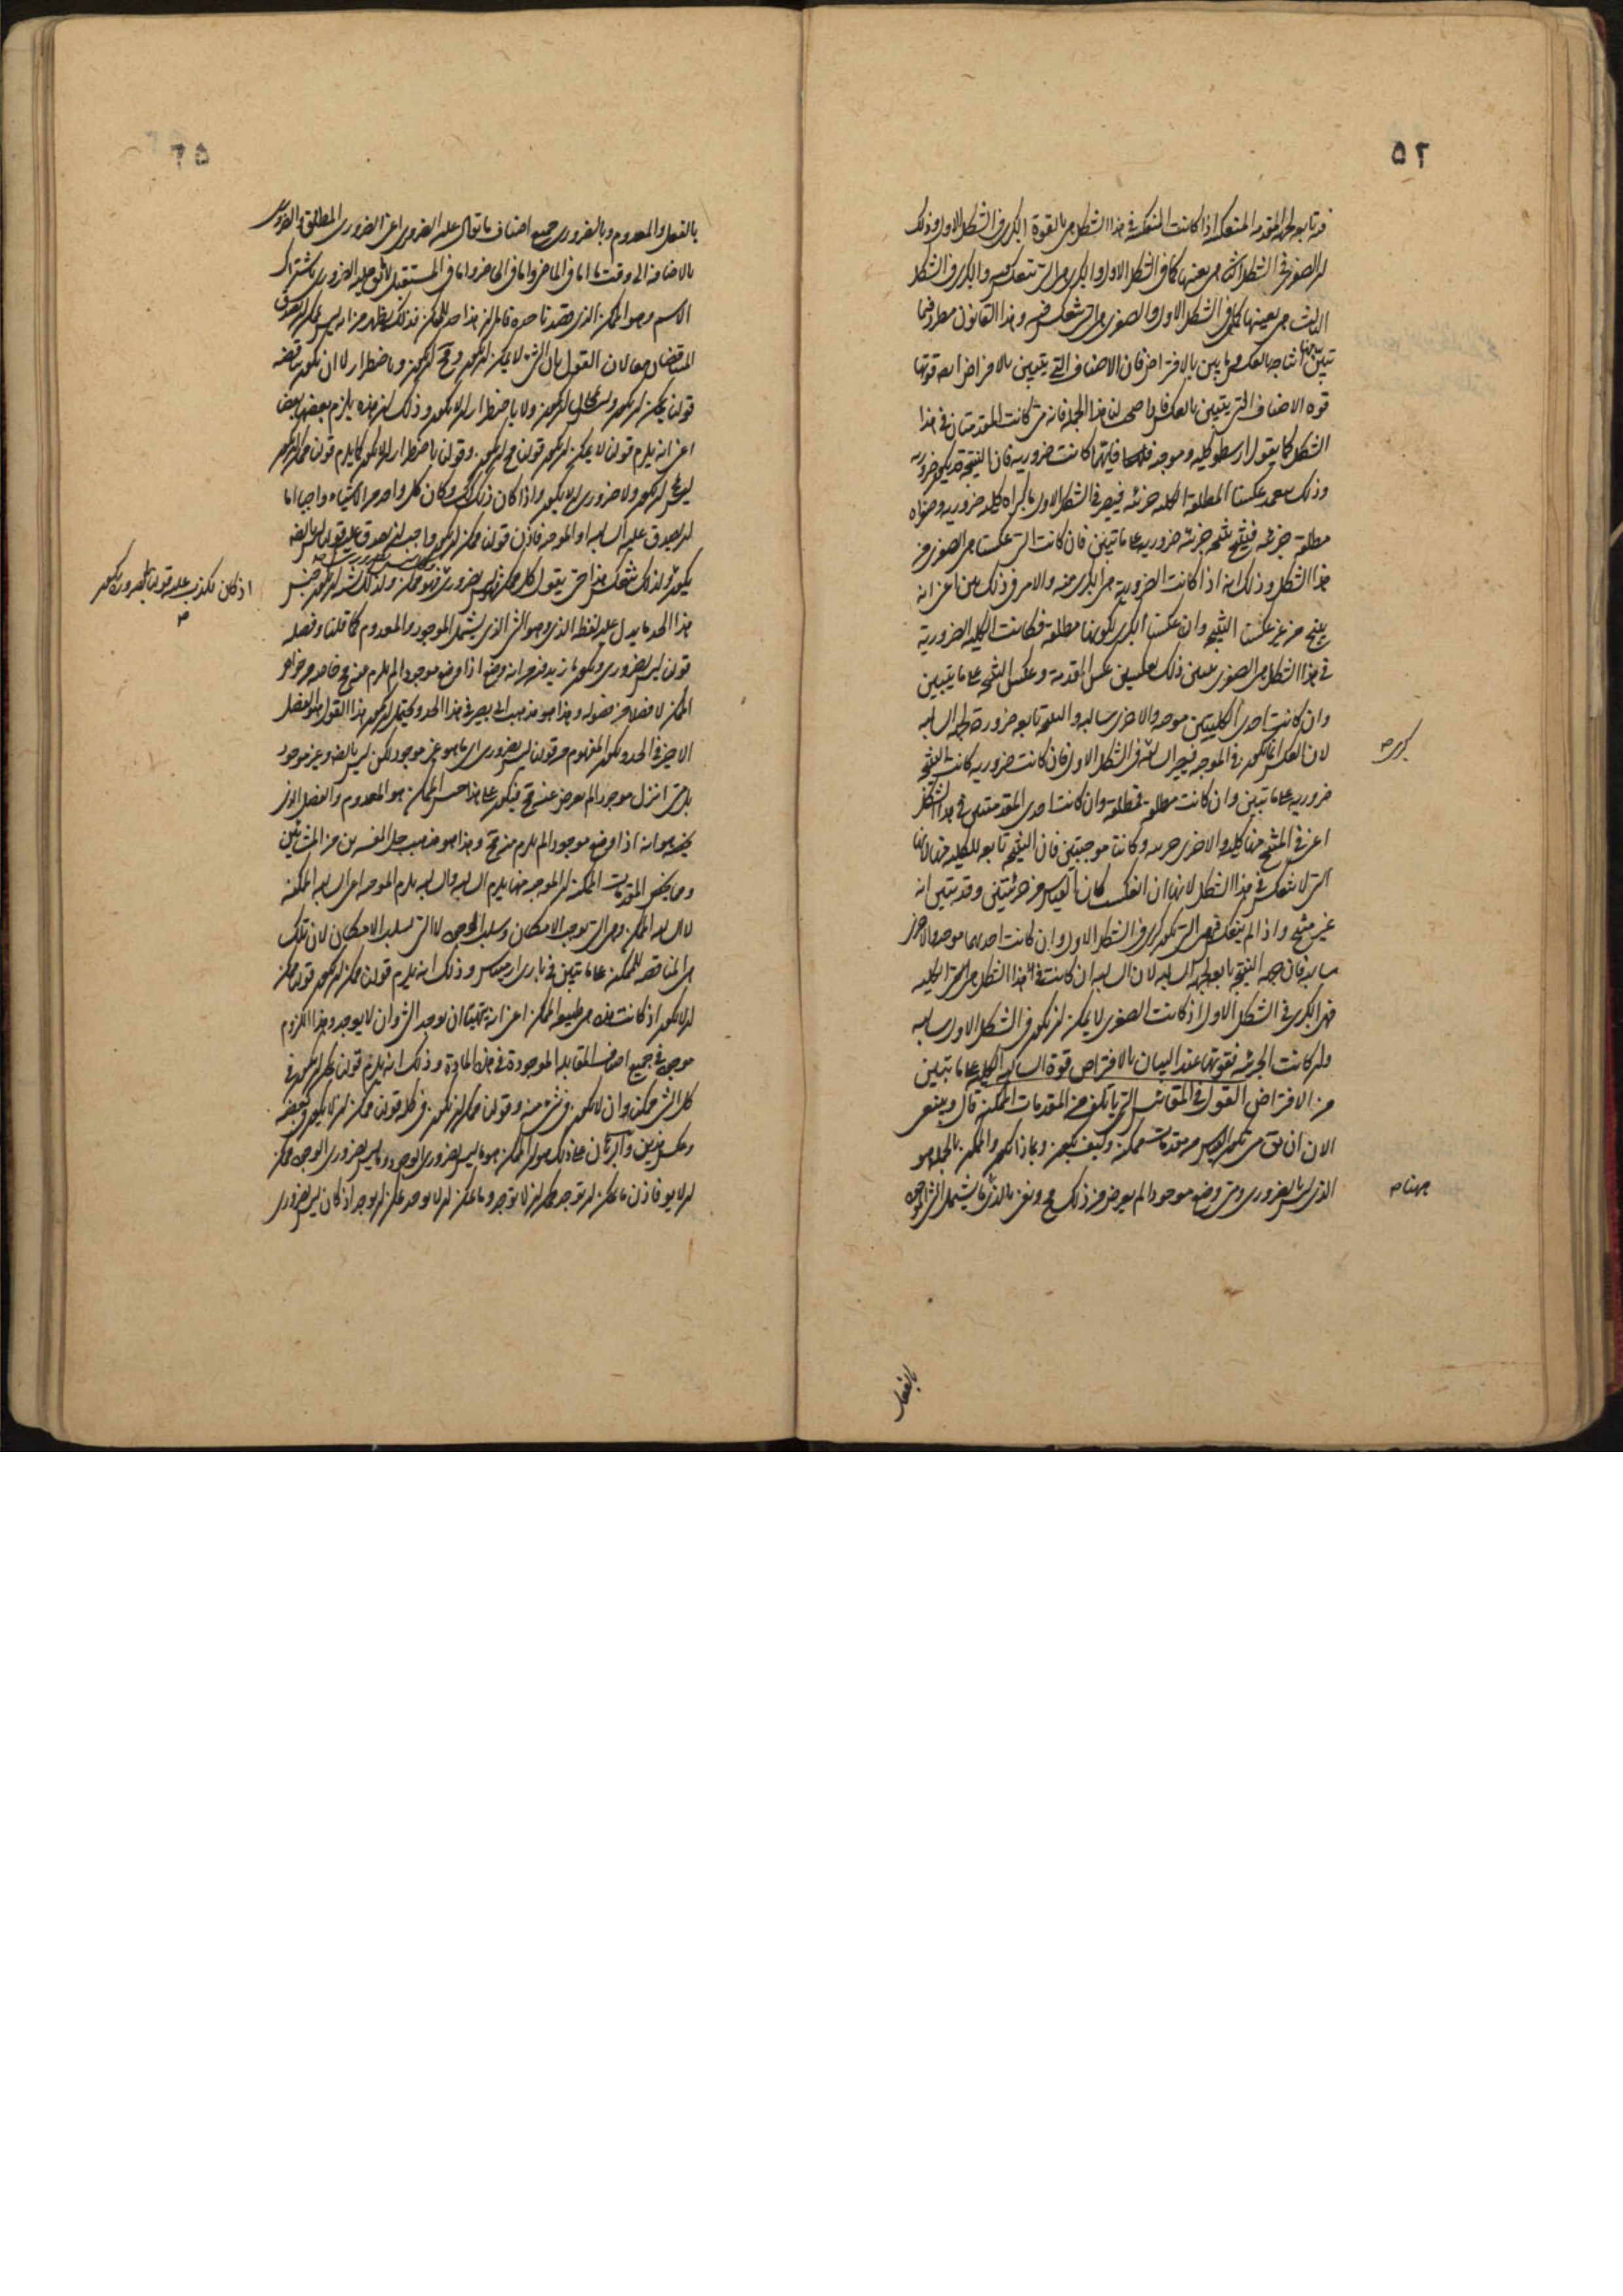 ٥٢
فيه تابعه لجهة المقدمة المنعكسة اذا كانت المنعكسة في هذا الشكل هي بالقوة الكبرى في الشكل الاول وذلك
ان الصغرى في الشكل الثاني هي بعينها كما في الشكل الاول والكبرى هي التي تنعكس فيه والكبرى في الشكل
الثالث هي بعينها كالحال في الشكل الاول والصغرى هي التي تنعكس فيه وهذا القانون مطرد فيما
تبين انتاجه بالعكس وما تبين بالافتراض فان الاصناف التي يتبين بالافتراض قوتها
قوة الاصناف التي يتبين بالعكس لنا هذا الجملة فانه متى كانت المقدمتان في هذا
الشكل كما يقول ارسطو كلية وموجبة فايتهما كانت ضرورية فان النتيجة تكون ضرورية
وذلك عكسنا المطلقة الكلية جزئية فيصير في الشكل الاول كبراه كلية ضرورية وصغراه
مطلقة جزئية فينتج نتيجة جزئية ضرورية على ما تبين فان كانت التي عكسنا هي الصغرى من
هذا الشكل وذلك انه اذا كانت الضرورية هي الكبرى منه والامر في ذلك بين اعني انه
ينتج من غير عكسنا النتيجة وان عكسنا الكبرى لكونها مطلقة وكانت الكلية الضرورية
في هذا الشكل هي الصغرى تبين ذلك بعكسين عكس المقدمة وعكس النتيجة على ما يتبين
وان كانت احدى الكليتين موجبة والاخرى سالبة والنتيجة تابعه ضرورة لجهة السالبة
كبرى صح
لان العكس انما يكون في الموجبة فيصير السالبة في الشكل الاول فان كانت ضرورية كانت النتيجة
ضرورية على ما تبين وان كانت مطلقة فمطلقة وان كانت احدى المقدمتين في هذا الشكل
اعني في المنتج منها كلية والاخرى جزئية وكانتا موجبتين فان النتيجة تابعه للكلية منها لانها
التي لا تنعكس في هذا الشكل لانها ان انعكست كان القياس من جزئيتين وقد تبين انه
غير منتج واذا لم ينعكس فهي التي تكون كبرى في الشكل الاول وان كانت احديهما موجبة والاخرى
سالبة فان جهة النتيجة تابعه لجهة السالبة لان السالبة ان كانت في هذا الشكل هي الكلية
فهي الكبرى في الشكل الاول اذ كانت الصغرى لا يمكن ان تكون في الشكل الاول سالبة
وان كانت الجزئية فقوتها عند البيان بالافتراض قوة السالبة الكلية على ما تبين
من الافتراض القول في المقائيس التي تأتلف من المقدمات الممكنة قال وينبغي
الان ان نق متى يكون القياس من مقدمات ممكنة وكيف يكون وبماذا يكون والممكن بالجملة هو
الذي ليس بالضروري ومتى وضع موجودا لم يعرض من ذلك مح ونعني بالذي ما يشمل الشئ الموجود
جهتها صح
بالفعل
٥٢
بالفعل والمعدوم وبالضروري جميع اصناف ما يقال عليه الضروري اعني الضروري المطلق والضروري
بالاضافة الى وقت ما اما في الماضي واما في الحاضر واما في المستقبل عليه الضروري باشتراك
الاسم وهو الممكن الذي قصدنا حده قال ان هذا حد للممكن فذلك يظهر من انه ليس يمكن ان يصدق
المتناقضان معا لان القول بان الشئ لا يمكن ان يكون ومح ان يكون وباضطرار لا ان يكون يناقضه
قولنا يمكن ان يكون وليس بمحال ان يكون ولا باضطرار ان لا يكون وذلك ان هذه يلزم بعضها بعضا
اعني انه يلزم قولنا لا يمكن ان يكون قولنا مح ان يكون وقولنا باضطرار ان لا يكون كما يلزم قولنا ممكن ان يكون
ليس مح ان يكون ولا ضروري ان لا يكون واذا كان ذلك كذلك وكان كل واحد من الاشياء واجبا اما
ان يصدق عليه السالبة او الموجبة فاذن قولنا ممكن ان يكون واجب ان يصدق عليه قولنا ليس بالضرورة
اذ كان يكذب عليه قولنا بالضرورة يكون
صح
يكون ولذلك تنعكس هذا حتى يقول كل ممكن ليس بضروري فهو ممكن ولذلك يشبه ان يكون جنس
هذا الحد ما يدل عليه لفظه الذي وهو الشئ الذي يشمل الموجود والمعدوم كما قلنا وفصله
قولنا ليس بضروري ويكون ما زيد فيه من انه وضع اذا وضع موجودا لم يلزم عنه مح خاصة من خواص
الممكن لا فصلا من فصوله وهذا هو مذهب ابي نصر في هذا الحد ويحتمل ان يكون هذا القول هو الفصل
الاخير في الحد ويكون المفهوم من قولنا ليس بضروري اي ما هو غير موجود لكن ليس بالضرورة غير موجود
بل متى انزل موجودا لم يعرض عنه مح فيكون على هذا جنس الممكن هو المعدوم والفصل الذي
يخصه هو انه اذا وضع موجودا لم يلزم عنه مح وهذا هو مذهب جل المفسرين من المشائين
ومما يخص المقدمات الممكنة ان الموجبة منها يلزم السالبة والسالبة يلزم الموجبة اعني السالبة الممكنة
لا سالبة الممكن وهي التي توجب الامكان وسلب الوجود لا التي تسلب الامكان لان تلك
هي المناقضة للممكنة على ما تبين في باري ارمينياس وذلك انه يلزم قولنا ممكن ان يكون قولنا ممكن
ان لا يكون اذ كانت هذه هي طبيعة الممكن اعني انه يتهيأ ان يوجد الشئ وان لا يوجد وهذا اللزوم
موجود في جميع اصناف المقابلة الموجودة في هذه المادة وذلك انه يلزم قولنا ممكن ان يكون في
كل الشئ ممكن وان لا يكون في شئ منه وقولنا ممكن ان يكون في كله قولنا ممكن ان لا يكون في بعضه
وعكس هذين والبرهان على ذلك هو ان الممكن هو ما ليس بضروري الوجود وما ليس بضروري الوجود ممكن
ان لا يوجد فاذن ما يمكن ان يوجد ممكن ان لا يوجد وما يمكن ان لا يوجد يمكن ان يوجد اذ كان ليس بضروري